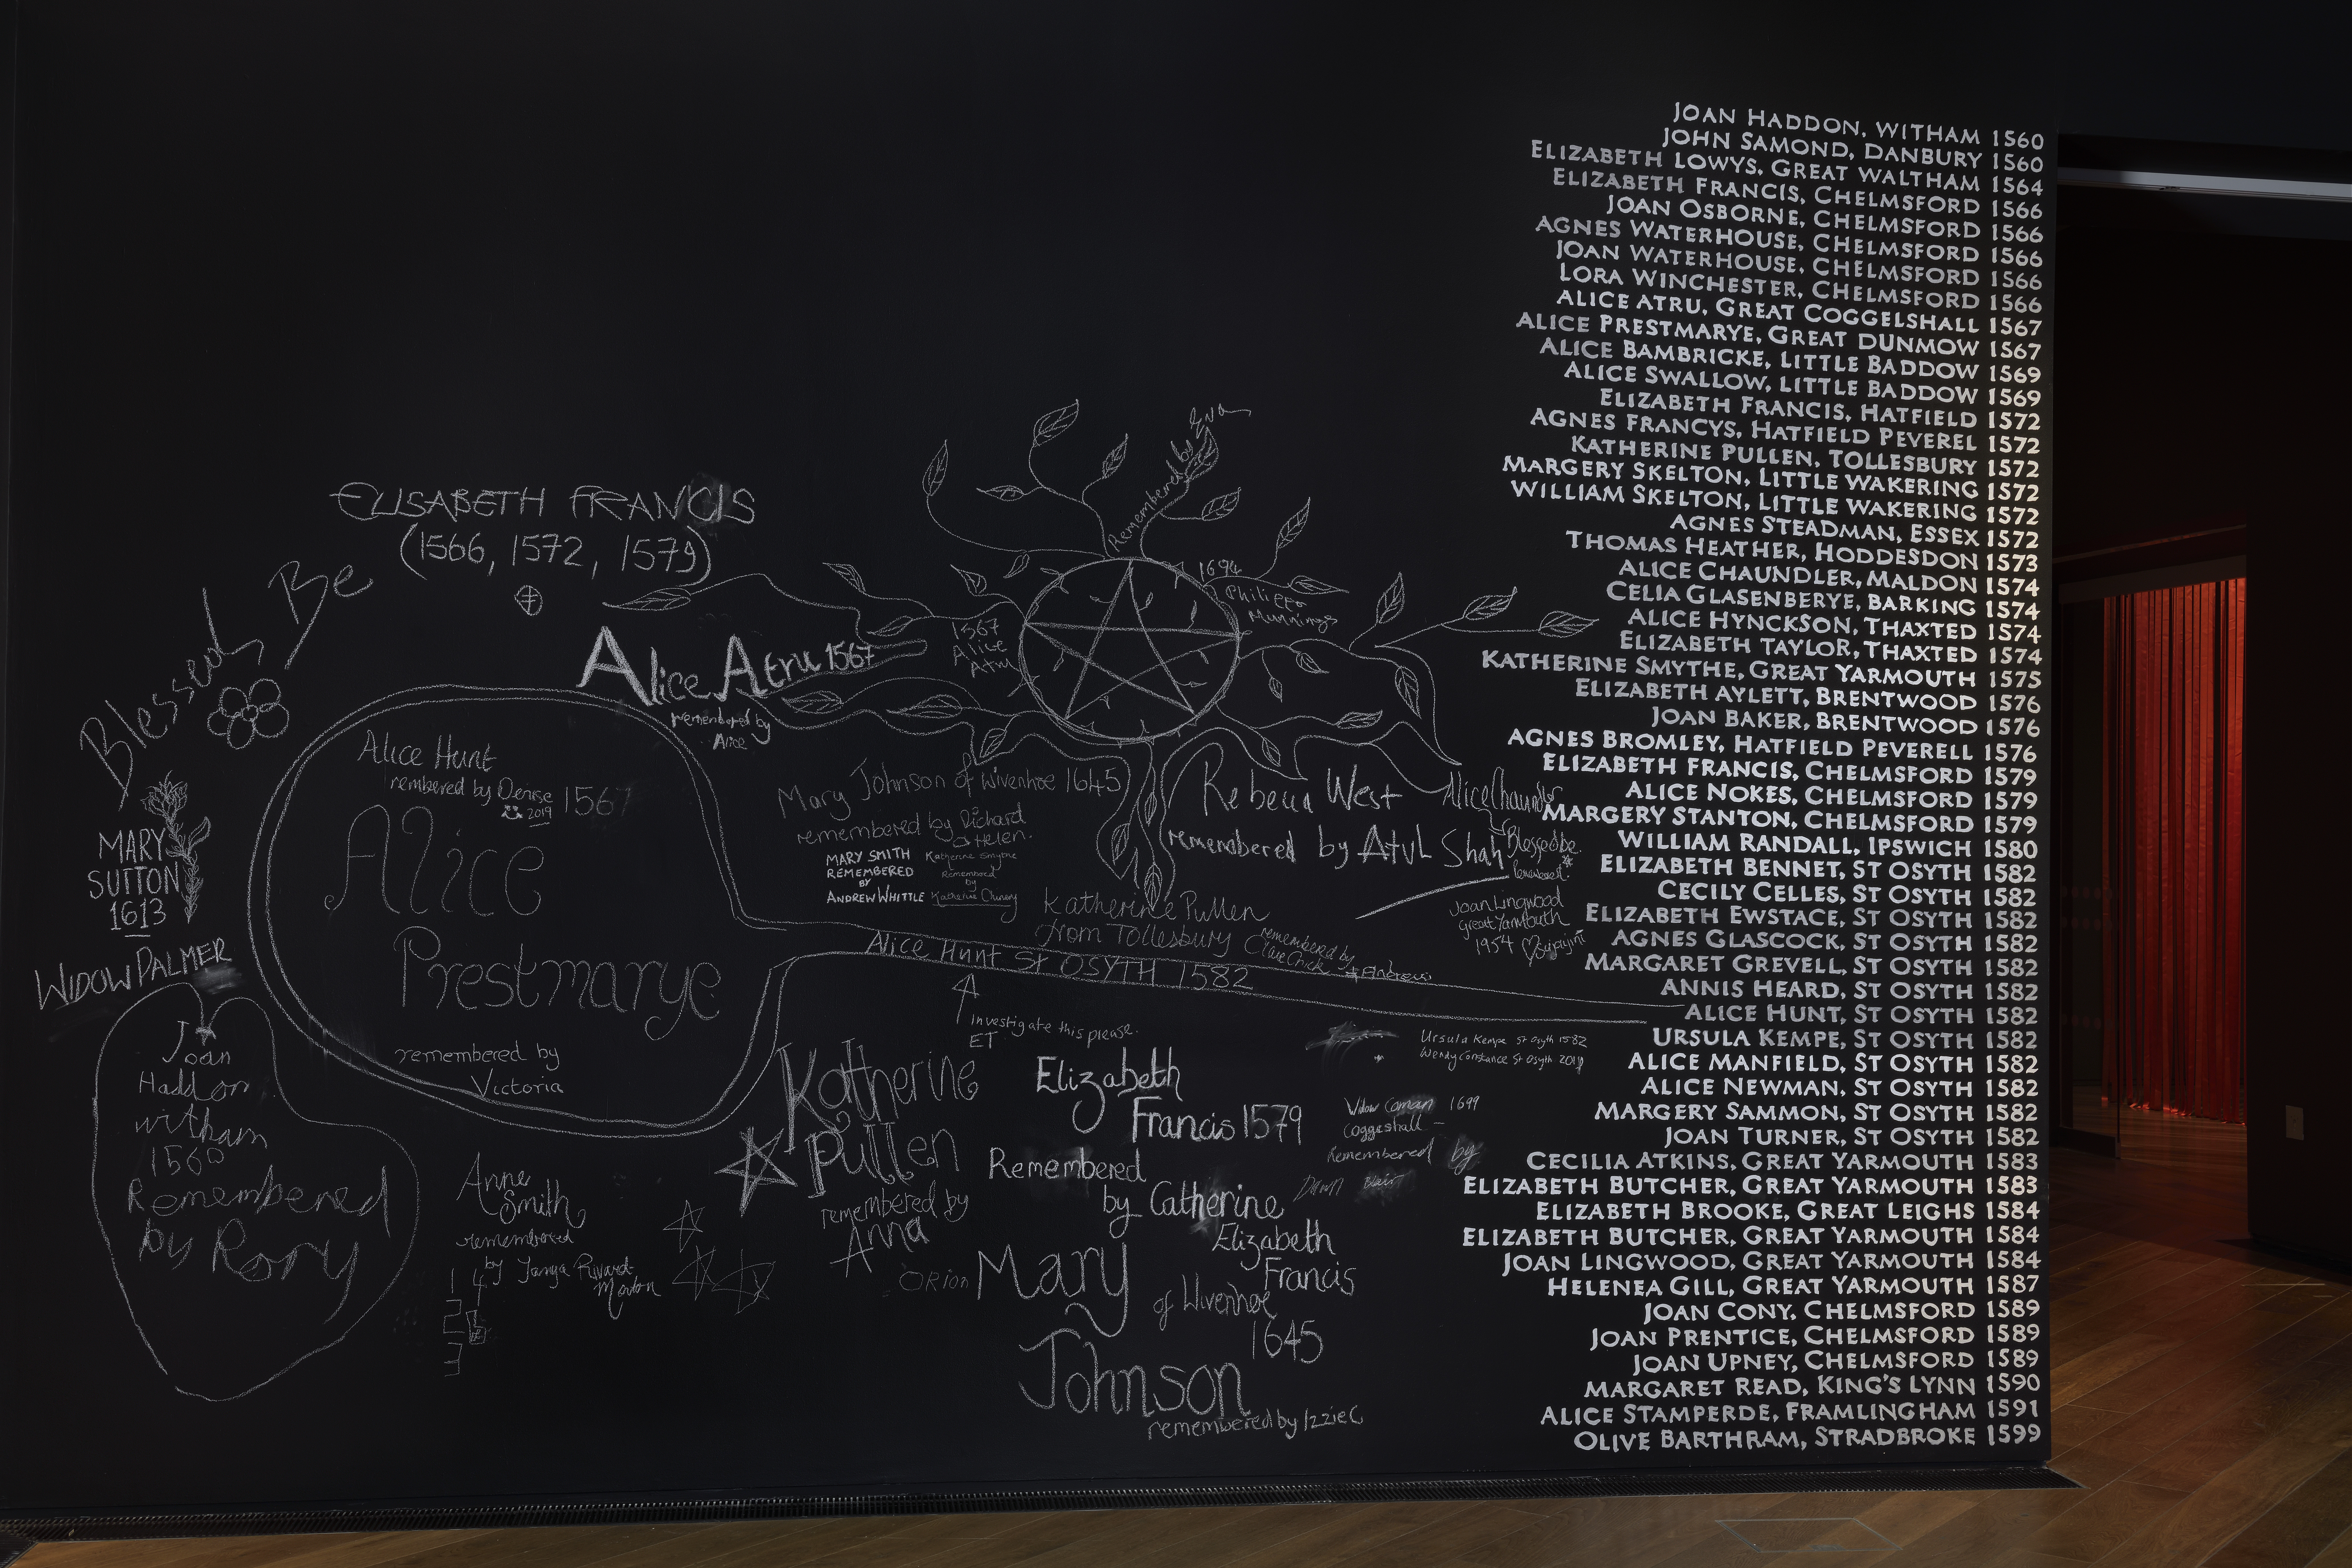 JOAN HADDON, WITHAM 1560
JOHN SAMOND, DANBURY 1560
ELIZABETH LOWYS, GREAT WALTHAM 1564
ELIZABETH FRANCIS, CHELMSFORD 1566
JOAN OSBORNE, CHELMSFORD 1566
AGNES WATERHOUSE, CHELMSFORD 1566
JOAN WATERHOUSE, CHELMSFORD 1566
LORA WINCHESTER, CHELMSFORD 1566
ALICE ATRU, GREAT COGGELSHALL 1567
ALICE PRESTMARYE, GREAT DUNMOW 1567
ALICE BAMBRICKE, LITTLE BADDOW 1569
ALICE SWALLOW, LITTLE BADDOW 1569
ELIZABETH FRANCIS, HATFIELD 1572
AGNES FRANCYS, HATFIELD PEVEREL 1572
KATHERINE PULLEN, TOLLESBURY 1572
MARGERY SKELTON, LITTLE WAKERING 1572
WILLIAM SKELTON, LITTLE WAKERING 1572
AGNES STEADMAN, ESSEX 1572
THOMAS HEATHER, HODDESDON 1573
ALICE CHAUNDLER, MALDON 1574
CELIA GLASENBERYE, BARKING 1574
ALICE HYNCKSON, THAXTED 1574
ELIZABETH TAYLOR, THAXTED 1574
KATHERINE SMYTHE, GREAT YARMOUTH 1575
ELIZABETH AYLETT, BRENTWOOD 1576
JOAN BAKER, BRENTWOOD 1576
AGNES BROMLEY, HATFIELD PEVERELL 1576
ELIZABETH FRANCIS, CHELMSFORD 1579
ALICE NOKES, CHELMSFORD 1579
MARGERY STANTON, CHELMSFORD 1579
WILLIAM RANDALL, IPSWICH 1580
ELIZABETH BENNET, ST OSYTH 1582
CECILY CELLES, ST OSYTH 1582
ELIZABETH EWSTACE, ST OSYTH 1582
AGNES GLASCOCK, ST OSYTH 1582
MARGARET GREVELL, ST OSYTH 1582
ANNIS HEARD, ST OSYTH 1582
ALICE HUNT, ST OSYTH 1582
URSULA KEMPE, ST OSYTH 1582
ALICE MANFIELD, ST OSYTH 1582
ALICE NEWMAN, ST OSYTH 1582
MARGERY SAMMON, ST OSYTH 1582
JOAN TURNER, ST OSYTH 1582
CECILIA ATKINS, GREAT YARMOUTH 1583
ELIZABETH BUTCHER, GREAT YARMOUTH 1583
ELIZABETH BROOKE, GREAT LEIGHS 1584
ELIZABETH BUTCHER, GREAT YARMOUTH 1584
JOAN LINGWOOD, GREAT YARMOUTH 1584
HELENEA GILL, GREAT YARMOUTH 1587
JOAN CONY, CHELMSFORD 1589
JOAN PRENTICE, CHELMSFORD 1589
JOAN UPNEY, CHELMSFORD 1589
MARGARET READ, KING'S LYNN 1590
ALICE STAMPERDE, FRAMLINGHAM 1591
OLIVE BARTHRAM, STRADBROKE 1599
ELISABETH FRANCIS
(1566, 1572, 1579)
Blessed Be
MARY
SUTTON
1613
WIDOW PALMER
Joan
Haddon
witham
1560
Remembered
by Rory
Alice Hunt
rembered by Denise
2019
1567
Alice
Prestmarye
remembered by
Victoria
Alice Atru 1567
remembered by
Alice
1567
Alice
Atru
Remembered by
Eva
1694
Philippa
Munnings
Mary Johnson of Wivenhoe 1645
remembered by Richard
& Helen.
MARY SMITH
REMEMBERED
BY
ANDREW WHITTLE
Katherine Smythe
Remembered
by
Rebecca West
remembered by Atul Shah
Alice Chaundler
Blessed be
Joan Lingwood
great Yarmouth
Katherine Pullen
from Tollesbury
remembered by
+ Andrew
Alice Hunt St OSYTH 1582
Investigate this please.
ET
Ursula Kempe St Osyth 1582
Wendy Constance St Osyth 2019
Katherine
Pullen
remembered by
Anna
Elizabeth
Francis 1579
Remembered
by Catherine
Elizabeth
Francis
Widow Coman 1699
Coggeshall
Remembered by
Dawn Blair
Anne
Smith
remembered
by Tanya
ORION
Mary
Johnson
of Wivenhoe
1645
remembered by Izzie C